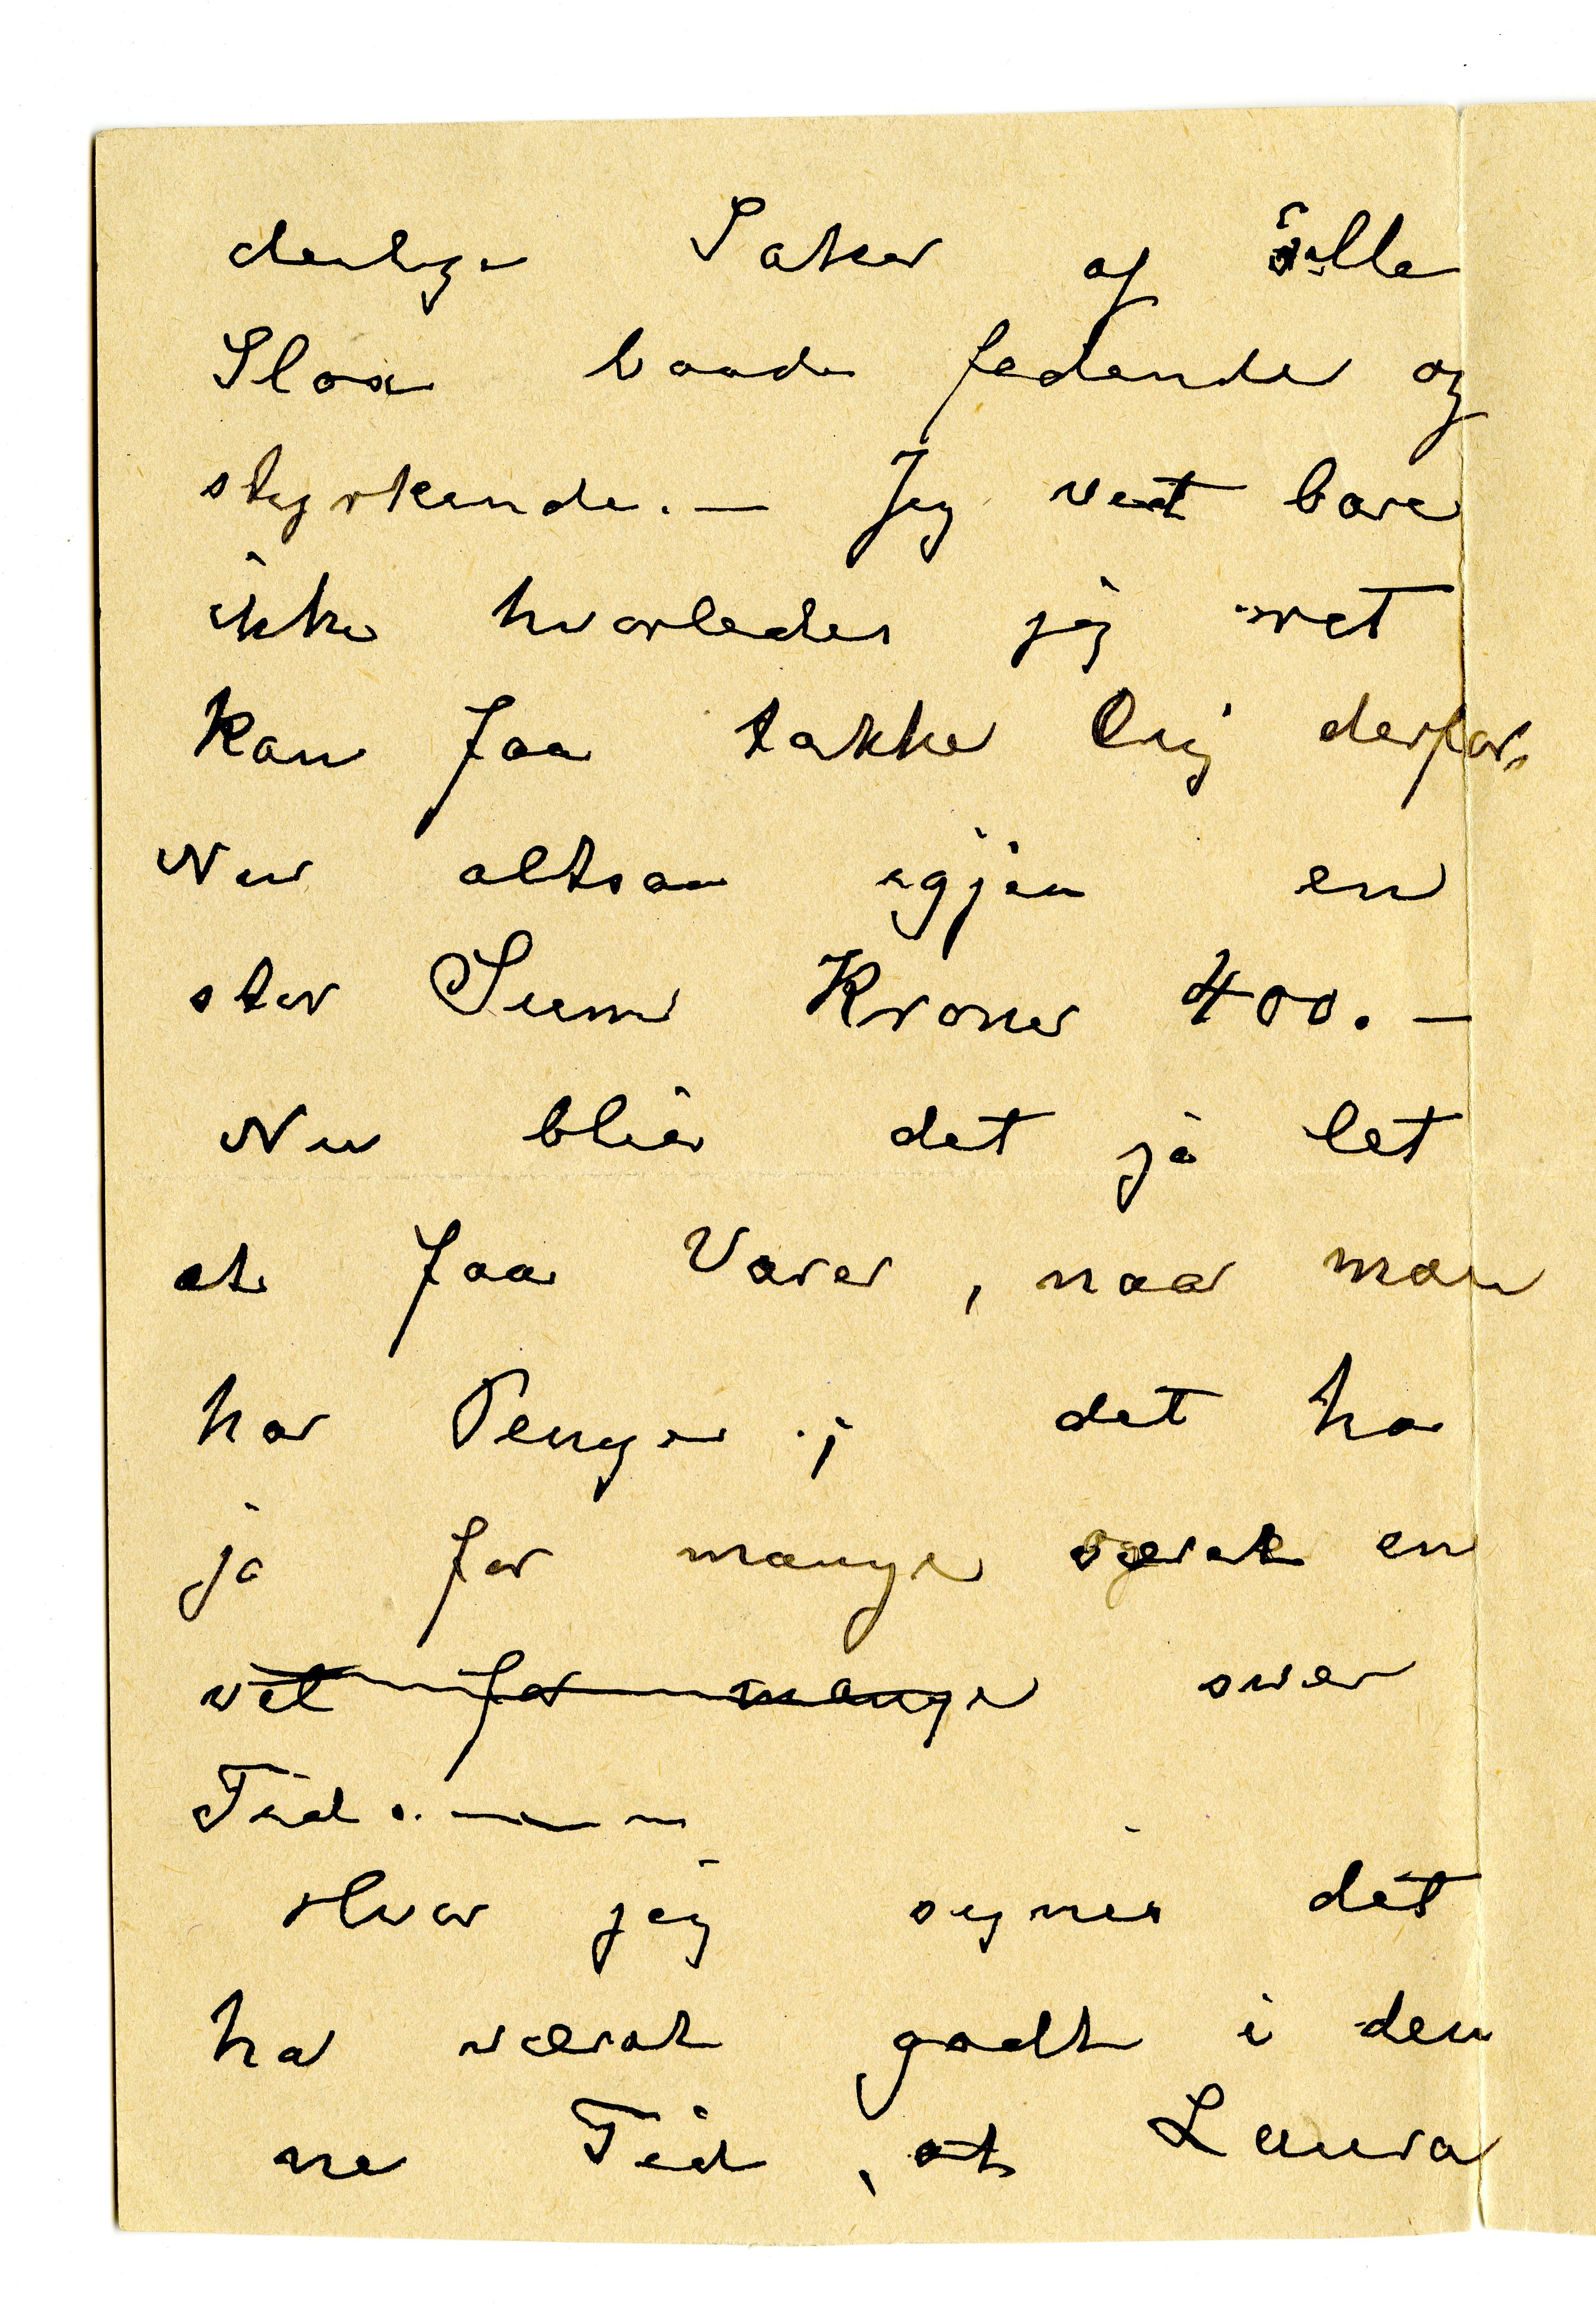 deilige Saker af alle
Slax baade fedende og
styrkende. — Jeg vet bare
ikke hvorledes jeg ret
kan faa takke Dig derfor.
Nu altsaa igjen en
stor Sum Kroner 400. —
Nu blir det ja let
at faa Varer, naar man
har Penger; det ha
ja for mange været en
vet for mange svær
Tid. — — —
Hvor jeg synes det
har været godt i den
ne Tid, at Laura